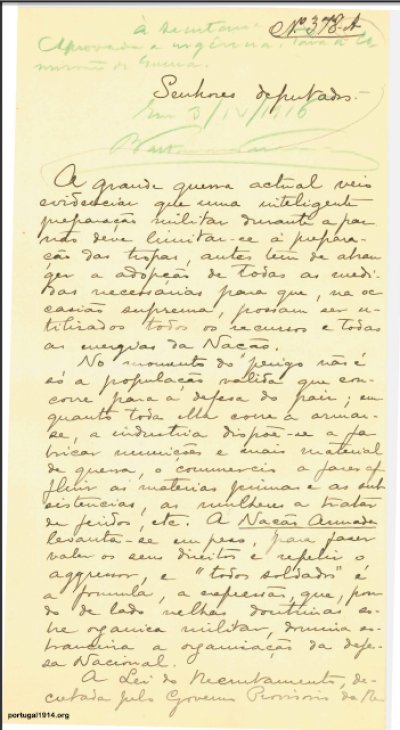 Nº 378-A
à Secretaria
Aprovada a urgência. Para a Co
missão de Guerra.
Senhores deputados.-
Em 3/IV/1916
A grande guerra actual veio
evidenciar que uma inteligente
preparação militar durante a paz
não deve limitar-se á prepara-
ção das tropas, antes tem de abran
ger a adopção de todas as medi-
das necessárias para que, na oc
casião suprema, possam ser u-
tilizados todos os recursos e todas
as energias da Nação.
No momento do perigo não é
só a população válida que con-
corre para a defesa do paiz; em
quanto toda ella corre a armar-
se, a industria dispõe-se a fa
bricar munições e mais material
de guerra, o commercio a fazer af
fluir as materias primas e as sub
sistencias, as mulheres a tratar
de feridos, etc. A Nação Armada
levanta-se em peso, para fazer
valer os seus direitos e repelir o
aggressor, e "todos soldados" é
a formula, a expressão, que, pon
do de lado velhas doutrinas so-
bre organica militar, domina so-
branceira a organisação da defe-
sa Nacional.
A Lei do Recrutamento, de-
cretada pelo Governo Provisorio da Re
portugal1914.org